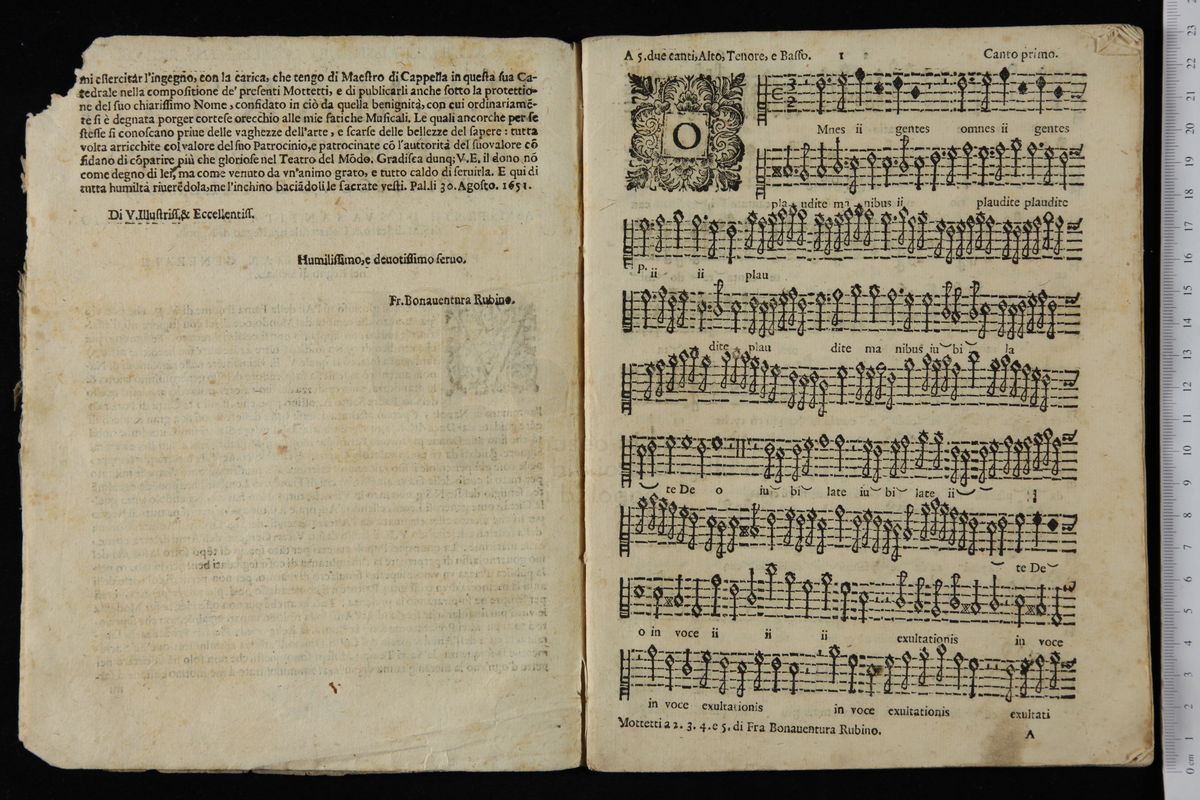 mi essercitar l'ingegno, con la carica, che tengo di Maestro di Cappella in questa sua Ca-
tedrale nella compositione de' presenti Mottetti, e di publicarli anche sotto la protettio-
ne del suo chiarissimo Nome, confidato in ciò da quella benignità, con cui ordinariamẽ-
te si è degnata porger cortese orecchio alle mie fatiche Musicali. Le quali ancorche per se
stesse si conoscano priue delle vaghezze dell'arte, e scarse delle bellezze del sapere: tutta
volta arricchite col valore del suo Patrocinio, e patrocinate cõ l'auttorità del suo valore cõ
fidano di cõparire più che gloriose nel Teatro del Mõdo. Gradisca dunq; V.E. il dono nõ
come degno di lei, ma come venuto da vn'animo grato, e tutto caldo di seruirla. E qui di
tutta humiltà riuerẽdola, me l'inchino baciãdoli le sacrate vesti. Pal. li 30. Agosto. 1651.
Di V. Illustriss. & Eccellentiss.
Humilissimo, e deuotissimo seruo.
Fr. Bonauentura Rubino.
A 5. due canti, Alto, Tenore, e Basso. 1 Canto primo.
OMnes ii gentes omnes ii gentes
plaudite manibus ii plaudite plaudite
ii ii plau
dite plau dite ma nibus iu bi la
te De o iu bi late iu bi late ii
te De
o in voce ii ii ii exultationis in voce
in voce exultationis in voce exultationis exultati
Mottetti a 2. 3. 4. e 5. di Fra Bonauentura Rubino. A